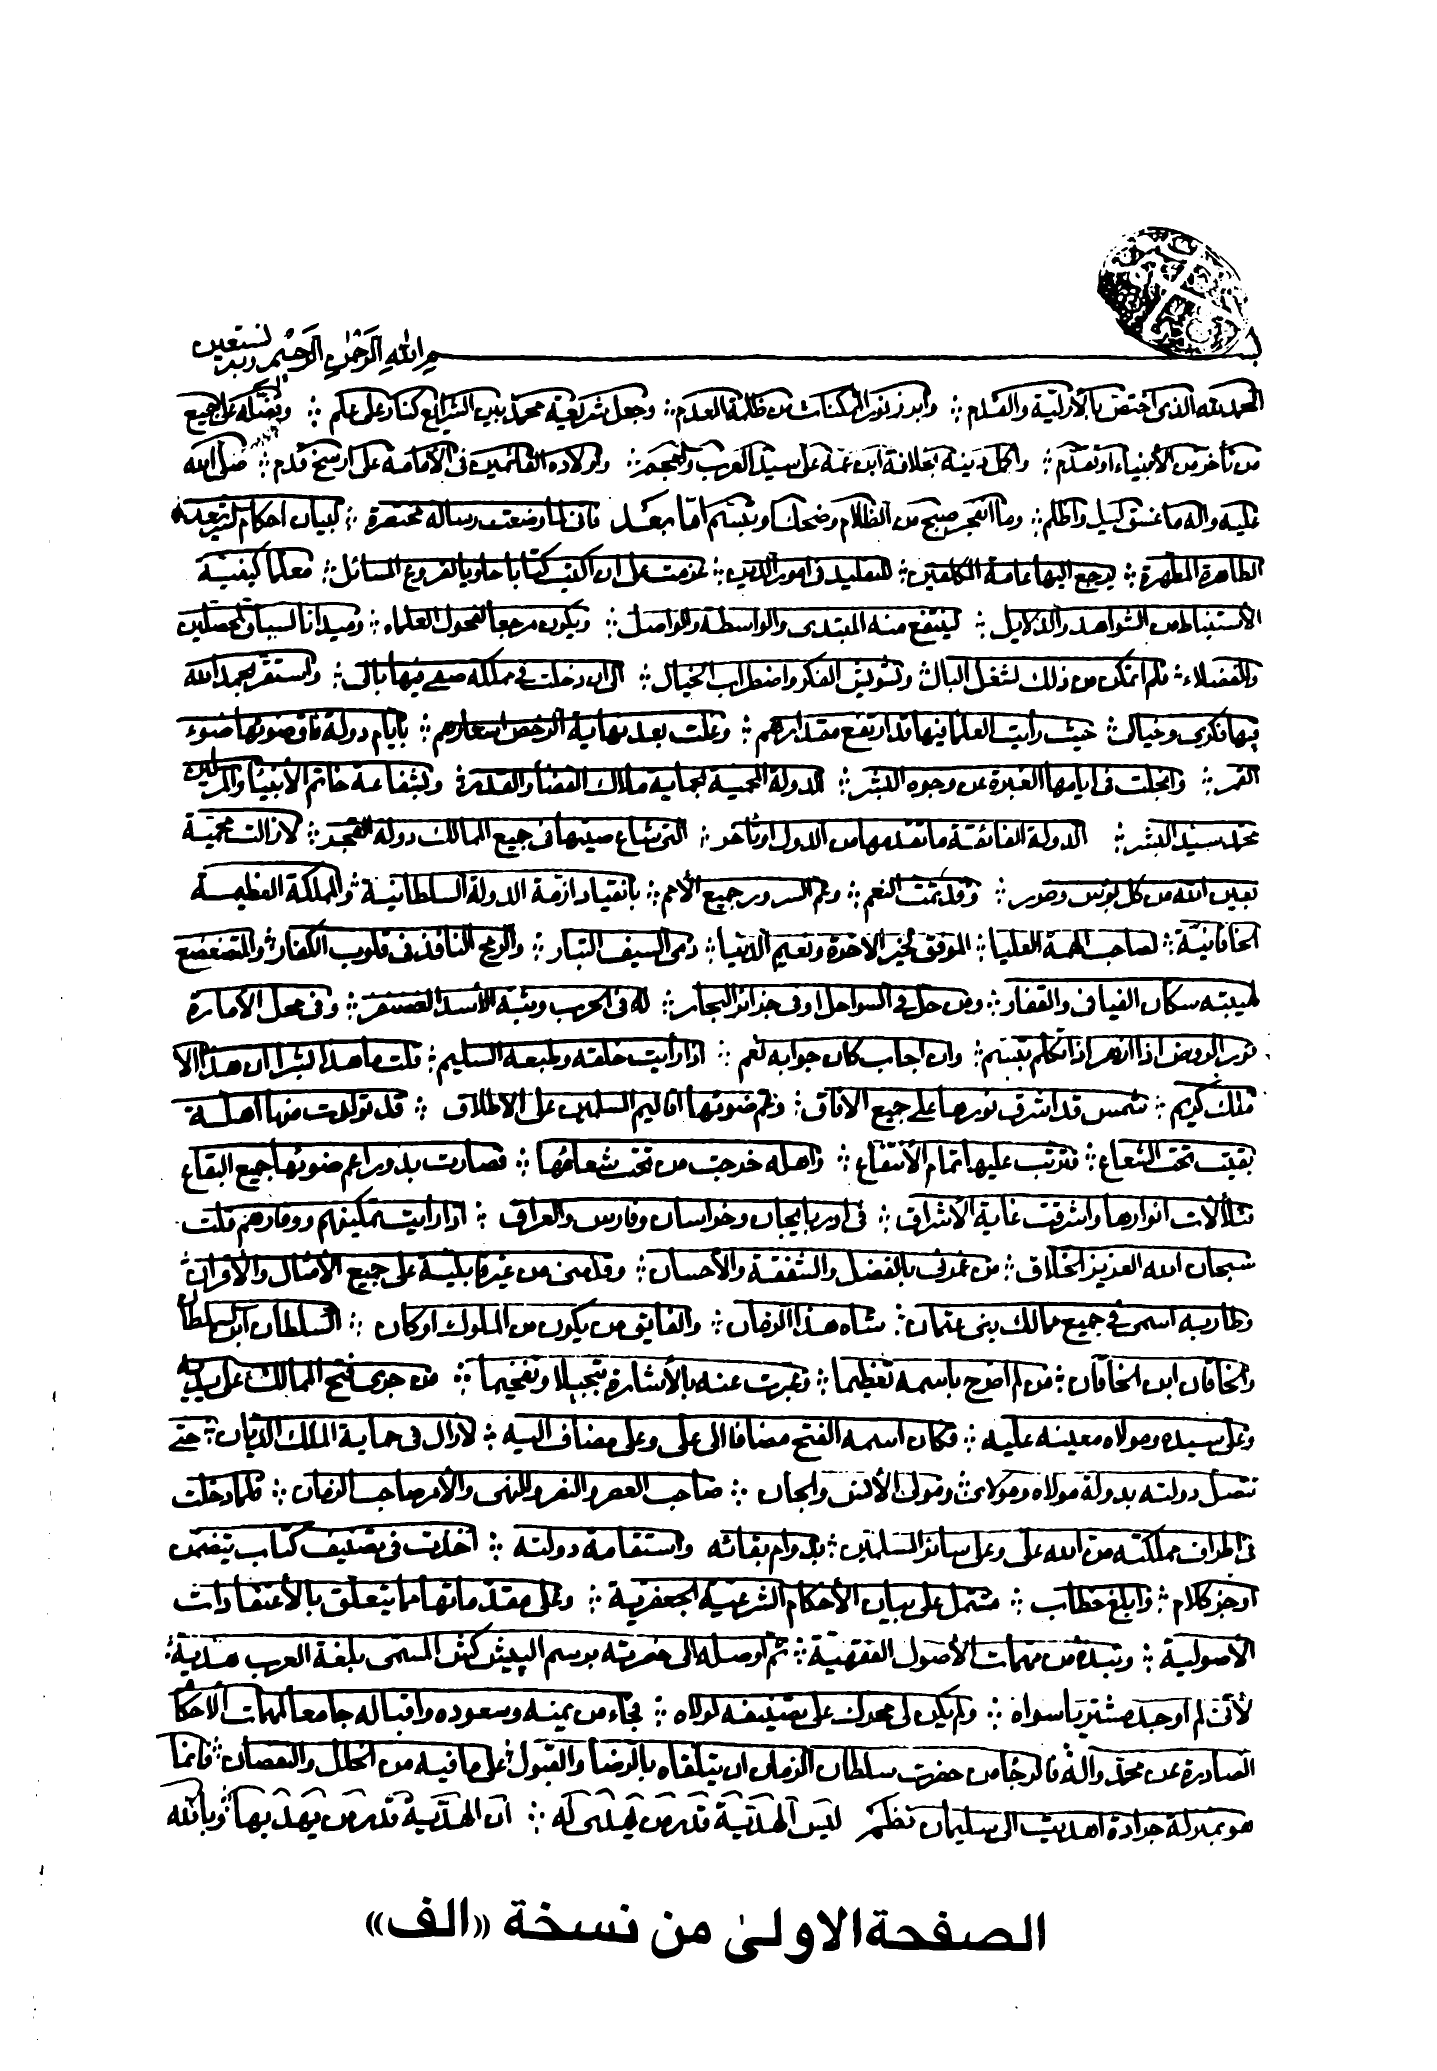 بسم الله الرحمن الرحيم وبه نستعين
الحمد لله الذى اختص بالأزلية والقدم ؛ وابرز نور الممكنات من ظلمة العدم ؛ وجعل شريعة محمد بين الشرايع كنار على علم ؛ وفضله على جميع
من تأخر من الأنبياء او تقدم ؛ واكمل دينه بخلافة ابن عمه على سيد العرب والعجم ؛ واولاده القائمين فى الأمامة على ارسخ قدم ؛ صلى الله
عليه واله ما غسق ليل واظلم ؛ وما انفجر صبح من الظلام وضحك وتبسم اما بعد فانى لما وضعت رسالة مختصرة ؛ لبيان احكام الشريعة
الطاهرة المطهرة ؛ يرجع اليها عامة المكلفين ؛ للتقليد فى امور الدين ؛ عزمت على ان اكتب كتابا حاويا لفروع المسائل ؛ معلما كيفية
الأستنباط من الشواهد والدلايل ؛ لينتفع منه المبتدى والواسطة والواصل ؛ ويكون مرجعا لفحول العلماء ؛ وميدانا لسباق المحصلين
والفضلاء ؛ فلم اتمكن من ذلك لشغل البال وتشويش الفكر واضطراب الخيال ؛ الى ان دخلت فى مملكة صفى فيها بالى ؛ واستقر بحمد الله
فيها فكرى وخيالى ؛ حيث رأيت العلما فيها قد ارتفع مقدارهم ؛ وغلت بعد نهاية الرخص اسعارهم ؛ بأيام دولة فاق ضوئها ضوء
القمر ؛ وانجلت فى ايامها الغبرة عن وجوه البشر ؛ الدولة المحمية بحماية مالك القضا والقدر ؛ وبشفاعة خاتم الأنبياء والمرسلين
محمد سيد البشر ؛ الدولة الفائقة ما تقدمها من الدول او تأخر ؛ التى شاع صيتها فى جميع الممالك دولة الفجر ؛ لازالت محمية
بعين الله من كل بؤس وضرر ؛ وقد تمت النعم ؛ وعم السرور جميع الأمم ؛ بانقياد ازمة الدولة السلطانية والمملكة العظيمة
الخاقانية ؛ لصاحب الهمة العليا ؛ الموفق لخير الاخرة ونعيم الدنيا ؛ ذى السيف البتار ؛ والرمح النافذ فى قلوب الكفار والمتضعضع
لهيبته سكان الفيافى والقفار ؛ ومن حل فى السواحل او فى جزائر البحار ؛ له فى الحرب وثبة الأسد الغضنفر ؛ وفى محل الأمارة
نور الروض اذا ازهر اذا تكلم تبسم ؛ وان اجاب كان جوابه نعم ؛ اذا رأيت خلقه وطبعه السليم ؛ قلت ما هذا بشرا ان هذا الا
ملك كريم ؛ شمس قد اشرق نورها على جميع الافاق ؛ وعم ضوئها اقاليم المسلمين على الاطلاق ؛ قد تولدت منها اهلة
بقيت تحت الشعاع ؛ فترتب عليها تمام الأنتفاع ؛ واهله خرجت من تحت شعاعها ؛ فصارت بدورا عم ضوئها جميع البقاع
تلألأت انوارها واشرقت غاية الأشراق ؛ فى اذربايجان وخراسان وفارس والعراق ؛ اذا رايت تمكينهم ووقارهم قلت
سبحان الله العزيز الخلاق ؛ من غمرنى بالفضل والشفقة والأحسان ؛ وقدمنى من غير قابلية على جميع الأمثال والأقران
وطار به اسمى فى جميع ممالك بنى عثمان ؛ شاه هذا الزمان ؛ والفايق من يكون من الملوك او كان ؛ السلطان ابن السلطان
والخاقان ابن الخاقان ؛ من لم اصرح باسمه تعظيما ؛ وعبرت عنه بالأشارة تبجيلا وتفخيما ؛ من جرى فتح الممالك على يديه
وعلى سيده ومولاه معينه عليه ؛ فكان اسمه الفتح مضافا الى على وعلى مضاف اليه ؛ لازال فى حماية الملك الديان ؛ حتى
تتصل دولته بدولة مولاه ومولاى ومولى الأنس والجان ؛ صاحب العصر والنهى والأمر صاحب الزمان ؛ فلما دخلت
فى اطراف مملكته من الله على وعلى سائر المسلمين ؛ بدوام بقائه واستقامة دولته ؛ اخذت فى تصنيف كتاب يتضمن
اوجز كلام ؛ وابلغ خطاب ؛ مشتمل على بيان الأحكام الشرعية الجعفرية ؛ وعلى مقدماتها مما يتعلق بالأعتقادات
الأصولية ؛ ونبذة من مهمات الأصول الفقهية ؛ ثم اوصله الى حضرته بوسم البيش كش المسمى بلغة العرب هدية ؛
لأننى لم اوجد مشتريا سواه ؛ ولم يكن لى محرك على تصنيفه لولاه ؛ فجاء من يمنه وسعوده واقباله جامعا لمهمات الأحكا
الصادرة عن محمد واله فالرجا من حضرت سلطان الزمان ان يتلقاه بالرضا والقبول على ما فيه من الخلل والنقصان ؛ فانما
هو بمنزلة جرادة اهديت الى سليمان نظم ليس الهدية قدر من يهدى له ؛ ان الهدية قدر من يهدى بها وبالله
الصفحة الاولىٰ من نسخة «الف»